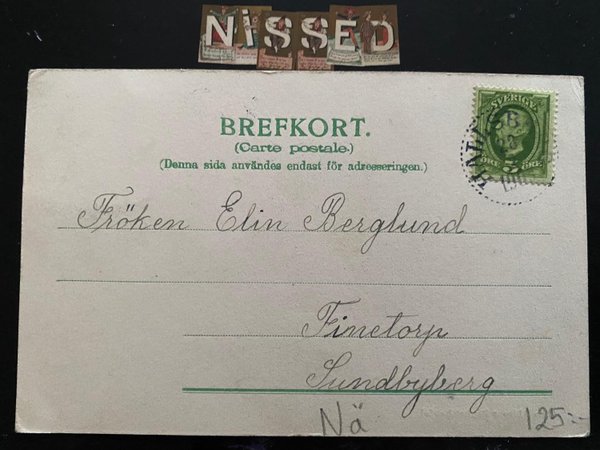 NISSED
SVERIGE
5
ÖRE ÖRE
BREFKORT.
(Carte postale.)
(Denna sida användes endast för adresseringen.)
Fröken Elin Berglund
Finetorp
Sundbyberg
Nä
125:-